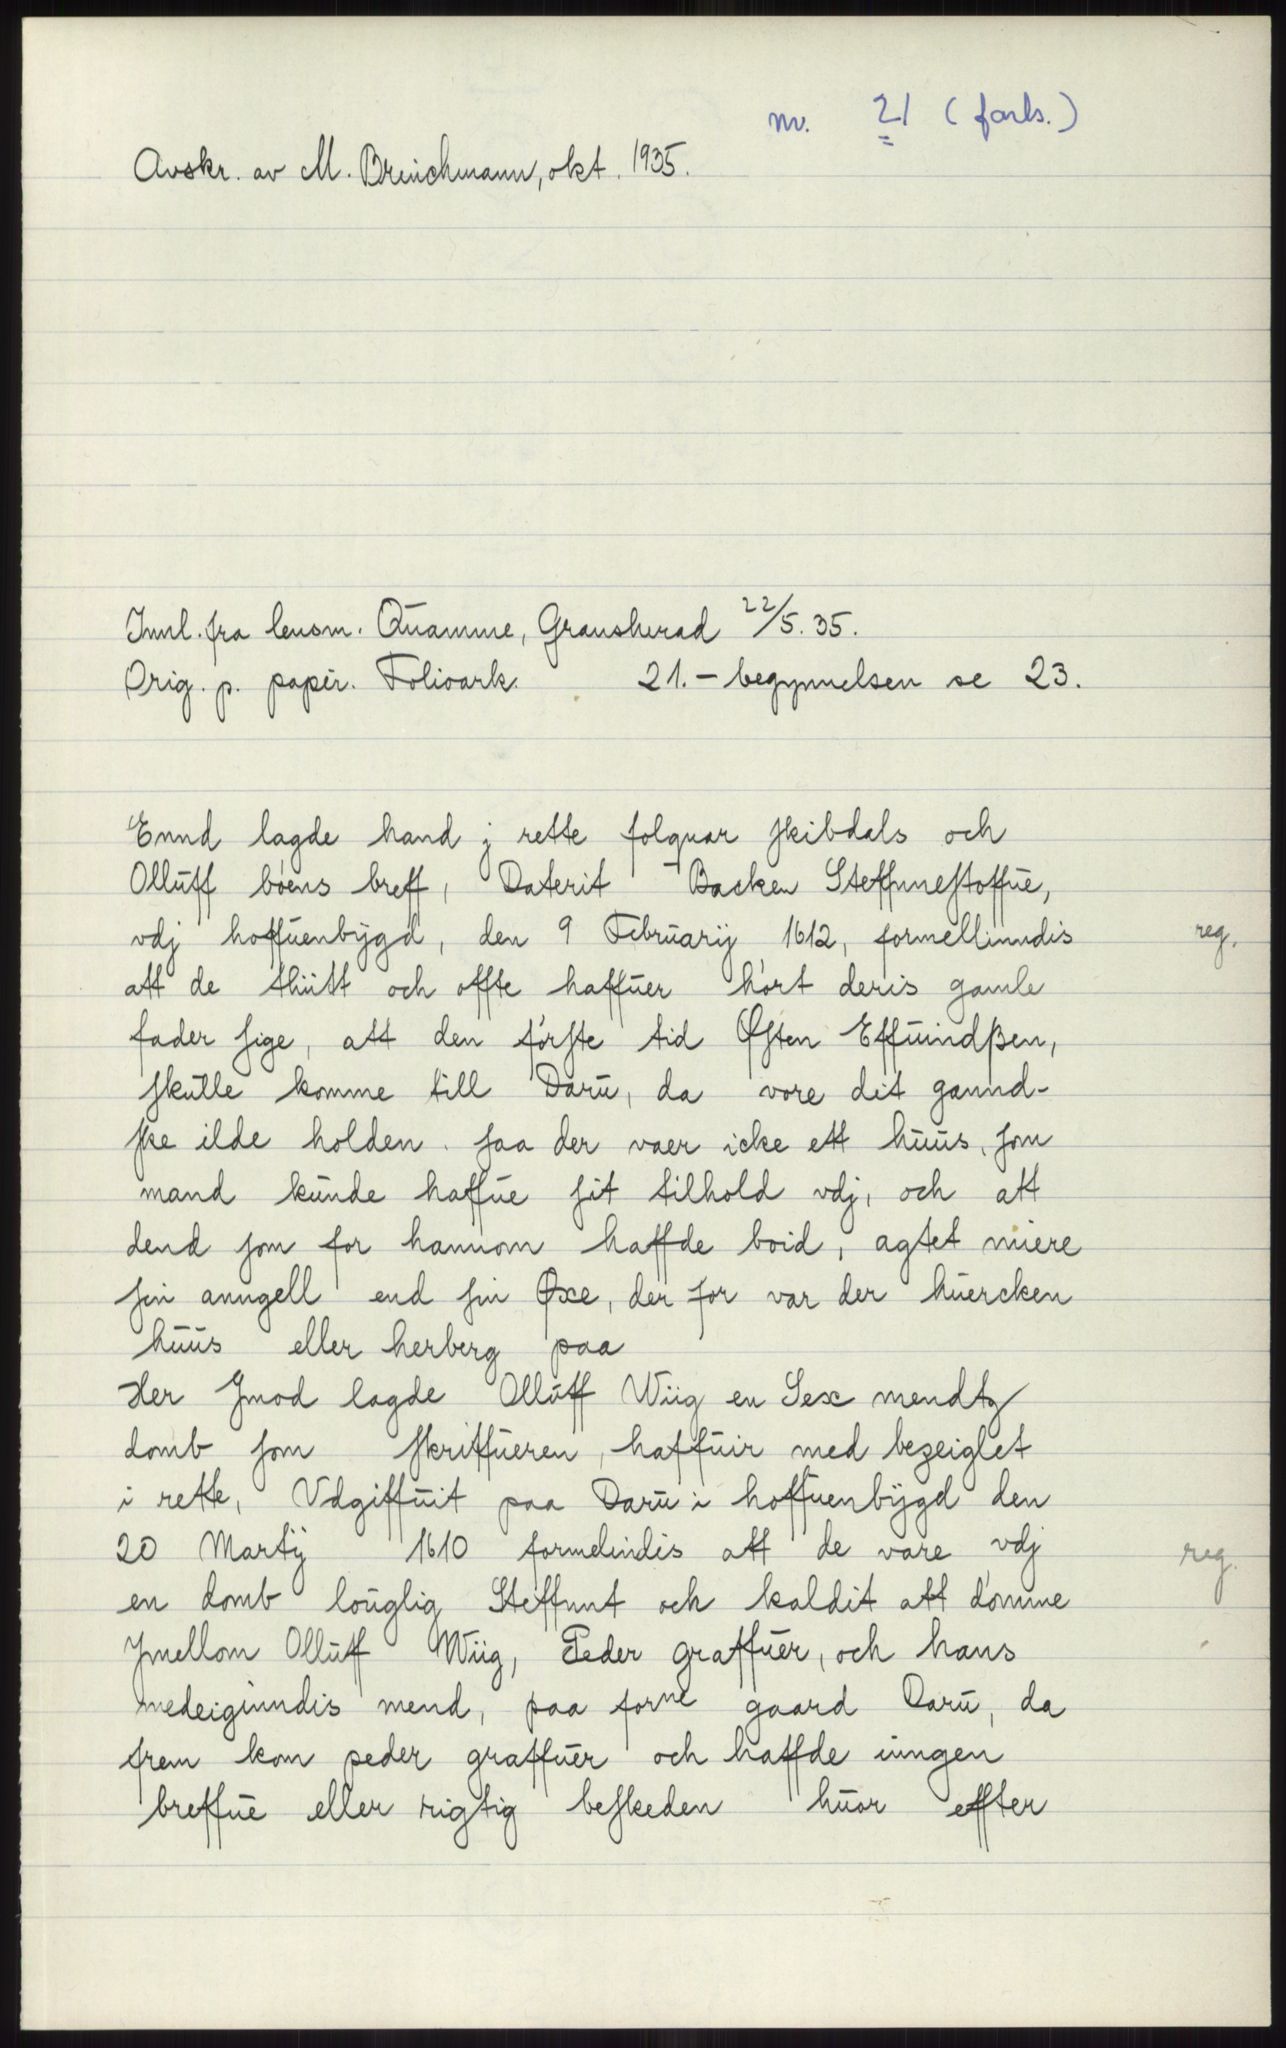 nr. 21 (forts.)
Avskr. av M. Brinchmann, okt. 1935.
Innl. fra lensm. Quamme, Gransherad 22/5. 35.
Orig. p. papir. Folioark. 21. – begynnelsen se 23.
Ennd lagde hand j rette folquar skibdals och
Olluff böens breff, Daterit Backen Steffnestoffue,
vdj hoffuenbygd, den 9 Februarij 1612, formellinndis reg.
att de thiitt och offte haffuer hört deris gamle
fader sige, att den förste tid Østen Effuindßen,
skulle komme till Daru, da vore dit gannd-
ske ilde holden. saa der vaer icke ett huus, som
mand kunde haffue sit tilhold vdj, och att
dend som for hannom haffde boid, agtet miere
sin anngell end sin Øxe, der for var der huercken
huus eller herberg paa
Her Jmod lagde Olluff Wiig en Sex mendtz
domb som skriffueren, haffuir med bezeiglet
i rette, Vdgiffuit paa Daru i hoffuenbygd den
20 Martij 1610 formelindis att de vare vdj reg.
en domb louglig Steffnnt och kaldit att dömme
Jmellom Olluff Wiig, Peder graffuer, och hans
medeiginndis mend, paa forne gaard Daru, da
frem kom peder graffuer och haffde inngen
breffue eller rigtig beskeden huor effter